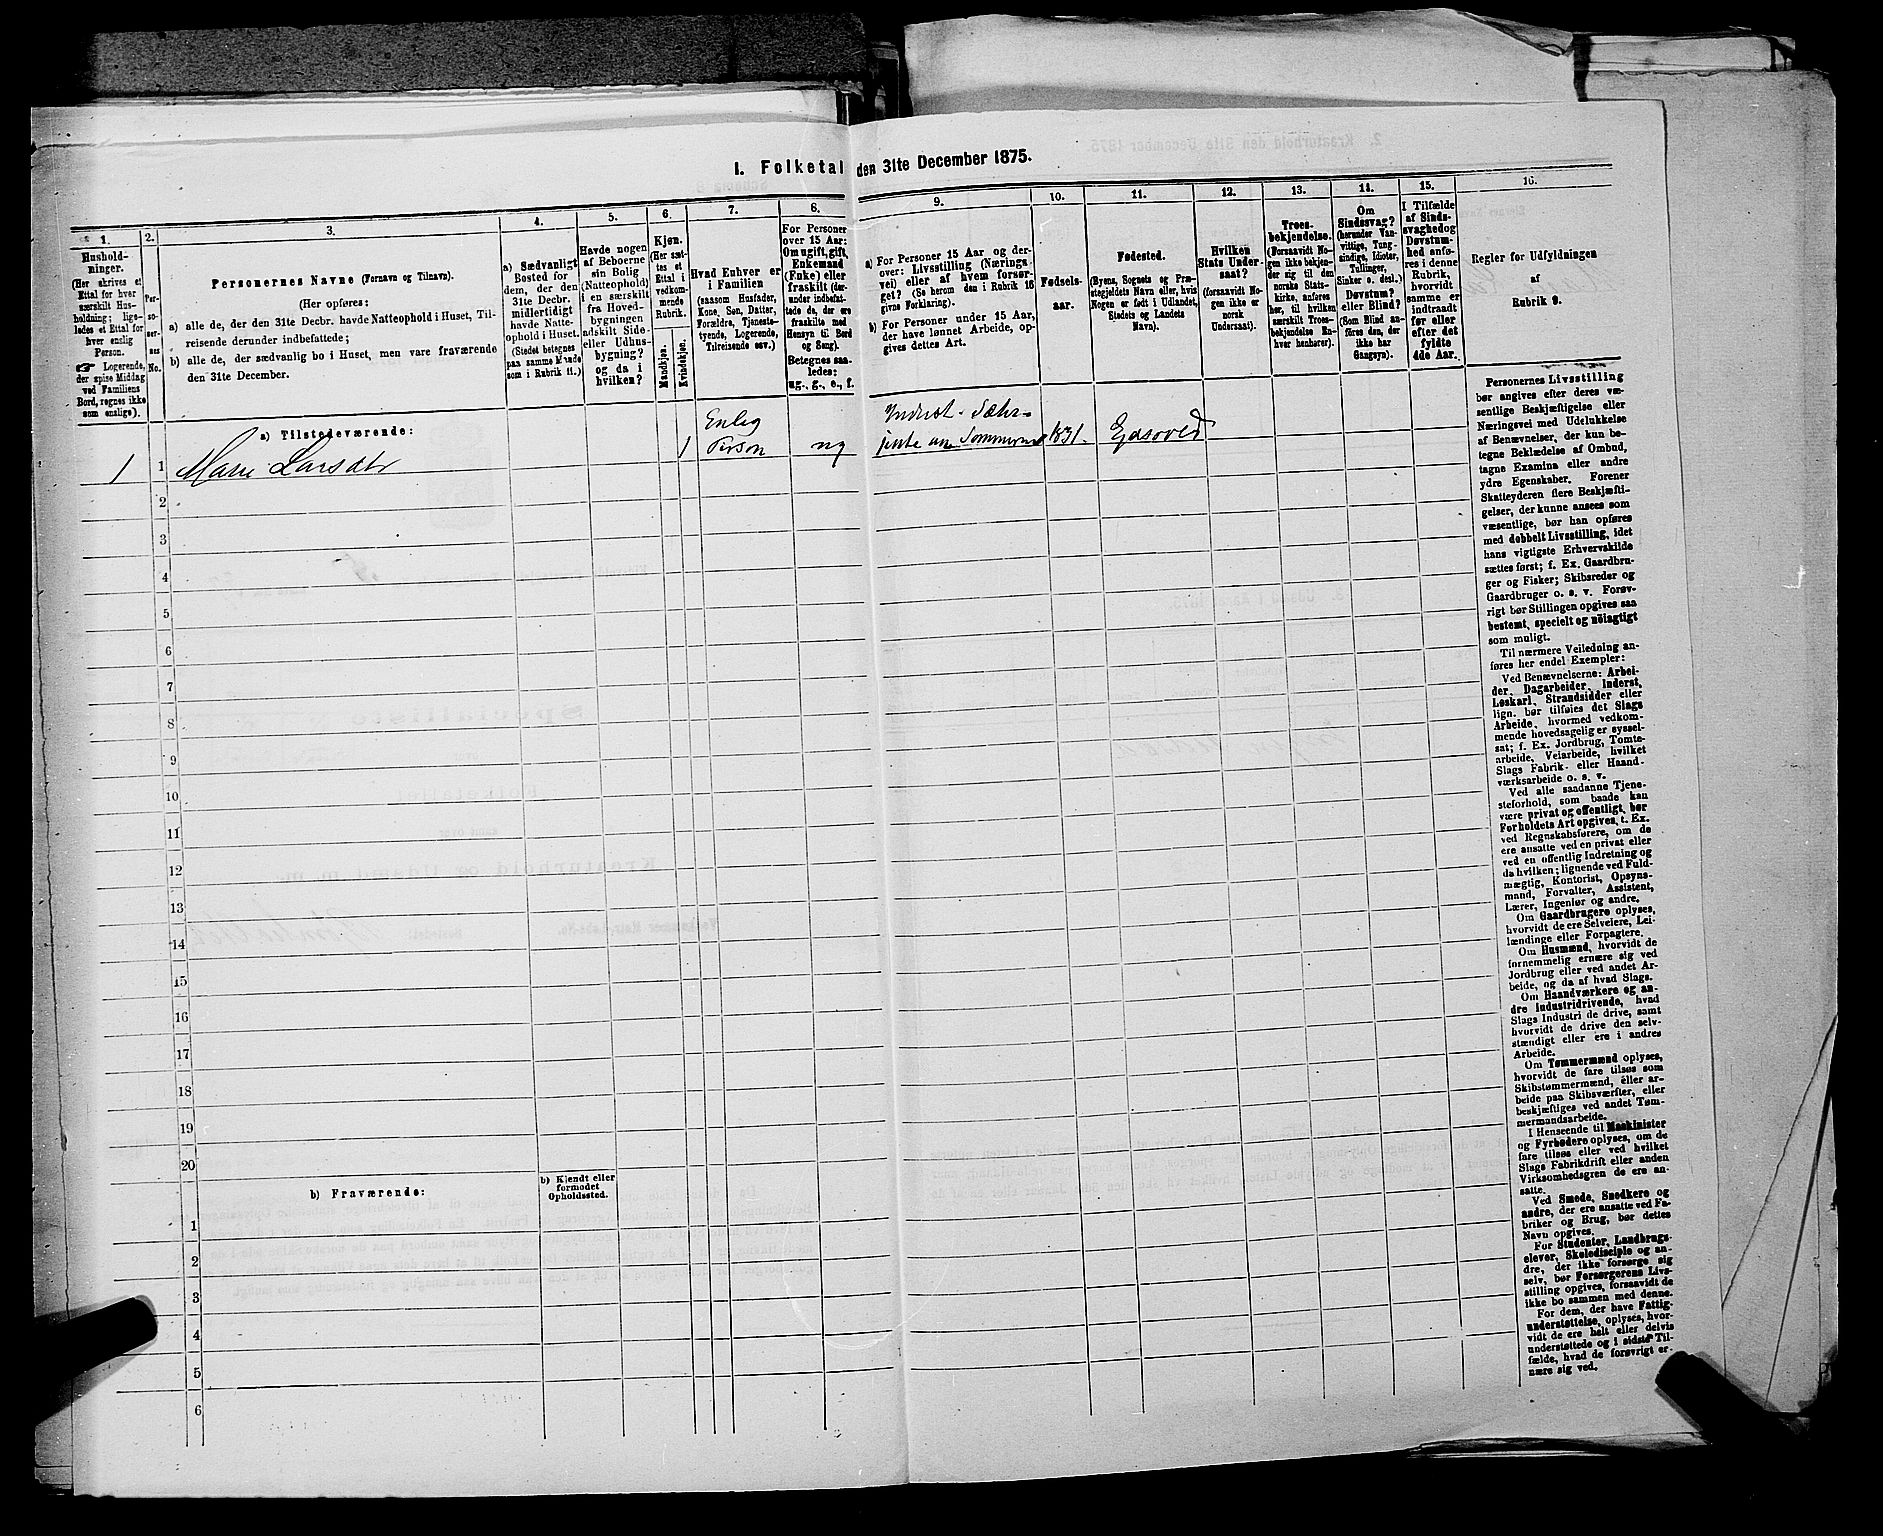 I. Folketal den 31te December 1875.
1.
Hushold-
ninger.
(Her skrives et
Ettal for hver
særskilt Hus-
holdning; lige-
ledes et Ettal for
hver enslig
Person.
☞ Logerende,
der spise Middag
ved Familiens
Bord, regnes ikke
som enslige).
2.
Per-
so-
ner-
nes
No.
3.
Personernes Navne (Fornavn og Tilnavn).
(Her opføres:
a) alle de, der den 31te Decbr. havde Natteophold i Huset, Til-
reisende derunder indbefattede;
b) alle de, der sædvanlig bo i Huset, men vare fraværende
den 31te December.
4.
a) Sædvanligt
Bosted for
dem, der den
31te Decbr.
midlertidigt
havde Natte-
ophold i Huset.
(Stedet betegnes
paa samme Maade
som i Rubrik 11.)
5.
Havde nogen
af Beboerne
sin Bolig
(Natteophold)
i en særskilt
fra Hoved-
bygningen
adskilt Side-
eller Udhus-
bygning?
og da i
hvilken?
6.
Kjøn.
(Her sæt-
tes et
Ettal i
vedkom-
mende
Rubrik.
Mandkjøn.
Kvindekjøn.
7.
Hvad Enhver er
i Familien
(saasom Husfader,
Kone, Søn, Datter,
Forældre, Tjeneste-
tyende, Logerende,
Tilreisende osv.)
8.
For Personer
over 15 Aar:
Om ugift, gift,
Enkemand
(Enke) eller
fraskilt (der-
under indbefat-
tede da, de ere
fraskilte med
Hensyn til Bord
og Seng).
Betegnes saa-
ledes:
ug., g., e., f.
9.
a) For Personer 15 Aar og der-
over: Livsstilling (Nærings-
vei) eller af hvem forsør-
get? (Se herom den i Rubrik 16
givne Forklaring).
b) For Personer under 15 Aar,
der have lønnet Arbeide, op-
gives dettes Art.
10.
Fødsels-
aar.
11.
Fødested.
(Byens, Sognets og Præ-
stegjeldets Navn eller, hvis
Nogen er født i Udlandet,
Stedets og Landets
Navn).
12.
Hvilken
Stats Under-
saat?
(forsaavidt No-
gen ikke er
norsk
Undersaat).
13.
Troes-
bekjendelse.
(Forsaavidt No-
gen ikke bekjen-
der sig til den
norske Stats-
kirke, anføres
her, til hvilken
særskilt Troes-
bekjendelse En-
hver henhører).
14.
Om
Sindssvag?
(herunder Van-
vittige, Tung-
sindige, Idioter,
Tullinger,
Sinker o. desl.)
Døvstum?
eller Blind?
(Som Blind an-
føres den, der
ikke har
Gangsyn).
15.
I Tilfælde
af Sinds-
svaghed og
Døvstum-
hed anfø-
res i denne
Rubrik,
hvorvidt
samme er
indtraadt
før eller
efter det
fyldte
4de Aar.
16.
Regler for Udfyldningen
af
Rubrik 9.
a) Tilstedeværende:
1 1 Marie Larsdtr 1 Enlig
Person ug 1831.
2
3
4
5
6
7
8
9
10
11
12
13
14
15
16
17
18
19
20
b) Fraværende:
b) Kjendt eller
formodet
Opholdssted.
1
2
3
4
5
6
Personernes Livsstilling
bør angives efter deres væ-
sentlige Beskjæftigelse eller
Næringsvei med Udelukkelse
af Benævnelser, der kun be-
tegne Beklædelse af Ombud,
tagne Examina eller andre
ydre Egenskaber. Forener
Skatteyderen flere Beskjæfti-
gelser, der kunne ansees som
væsentlige, bør han opføres
med dobbelt Livsstilling, idet
hans vigtigste Erhvervskilde
sættes først; f. Ex. Gaardbru-
ger og Fisker; Skibsreder og
Gaardbruger o. s. v. Forøv-
rigt bør Stillingen opgives saa
bestemt, specielt og nöiagtigt
som muligt.
Til nærmere Veiledning an-
føres her endel Exempler:
Ved Benævnelserne: Arbei-
der, Dagarbeider, Inderst,
Løskarl, Strandsidder eller
lign. bør tilføies det Slags
Arbeide, hvormed vedkom-
mende hovedsagelig er syssel-
sat; f. Ex. Jordbrug, Tomte-
arbeide, Veiarbeide, hvilket
Slags Fabrik- eller Haand-
værksarbeide o. s. v.
Ved alle saadanne Tjene-
steforhold, som baade kan
være privat og offentligt, bør
Forholdets Art opgives, t. Ex.
ved Regnskabsførere, om de
ere ansatte ved en privat eller
ved en offentlig Indretning og
da hvilken; lignende ved Fuld-
mægtig, Kontorist, Opsyns-
mand, Forvalter, Assistent,
Lærer, Ingeniør og andre.
Om Gaardbrugere oplyses,
hvorvidt de ere Selveiere, Lei-
lændinge eller Forpagtere.
Om Husmænd, hvorvidt de
fornemmelig ernære sig ved
Jordbrug eller ved andet Ar-
beide, og da af hvad Slags.
Om Haandværkere og an-
dre Industridrivende, hvad
Slags Industri de drive, samt
hvorvidt de drive den selv-
stændigt eller ere i andres
Arbeide.
Om Tømmermænd oplyses,
hvorvidt de fare tilsøs som
Skibstømmermænd, eller ar-
beide paa Skibsværfter, eller
beskjæftiges ved andet Tøm-
mermandsarbeide.
I Henseende til Maskinister
og Fyrbødere oplyses, om de
fare tilsøs eller ved hvilket
Slags Fabrikdrift eller anden
Virksomhedsgren de ere an-
satte.
Ved Smede, Snedkere og
andre, der ere ansatte ved Fa-
briker og Brug, bør dettes
Navn opgives.
For Studenter, Landbrugs-
elever, Skoledisciple og an-
dre, der ikke forsørge sig
selv, bør Forsørgerens Livs-
stilling opgives, forsaavidt de
ikke bo sammen med denne.
For dem, der have Fattig-
understøttelse, oplyses, hvor-
vidt de ere helt eller delvis
understøttede og i sidste Til-
fælde, hvad de forøvrigt er-
nære sig ved.